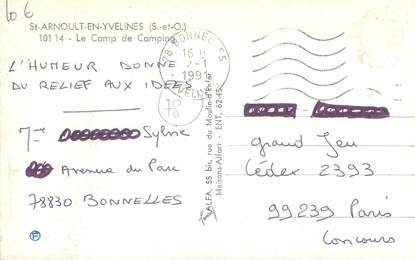 10 6
St-ARNOULT-EN-YVELINES (S.-et-O.)
10114 - Le Camp de Camping
L'HUMEUR DONNE
DU RELIEF AUX IDEES
Sylvie
Avenue du Parc
78830 BONNELLES
78 BONNELLES
16 H
2-1
1991
YVELINES
ALFA, 55 bis, rue du Moulin-d'Enfer
Maisons-Alfort - ENT. 62-15
Grand Jeu
Cédex 2393
99239 Paris
Concours